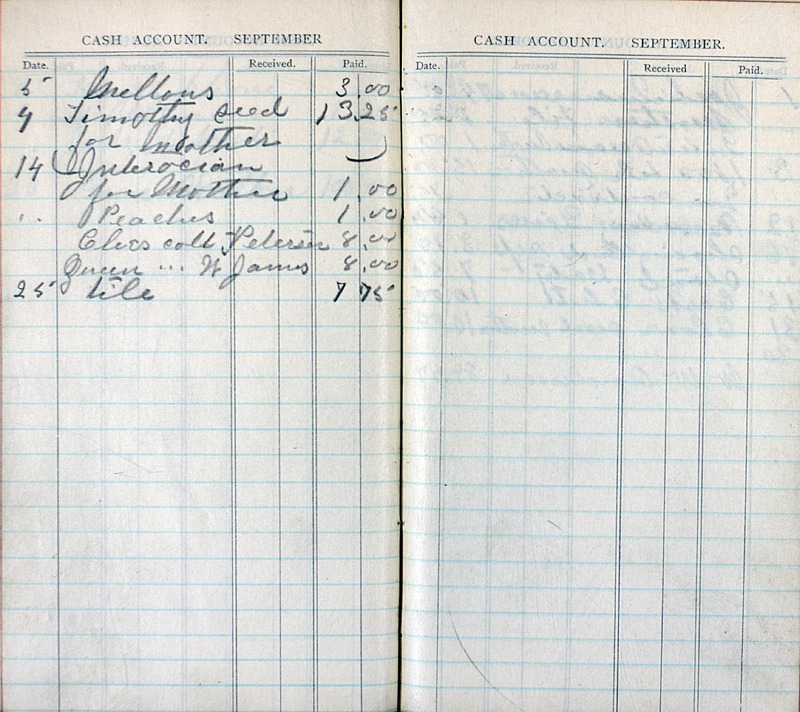 CASH ACCOUNT. SEPTEMBER
Date. Received. Paid.
5 Mellons 3.00
9 Timothy seed 13.25
for Mother
14
for Mother 1.00
" Peaches 1.00
colt Peterson 8.00
Queen " W James 8.00
25 tile 7 75
CASH ACCOUNT. SEPTEMBER.
Date. Received Paid.